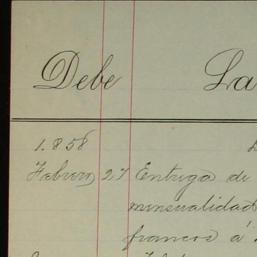 Debe La
1.858
Febrero 27 Entrega de
mensualidad
francos á